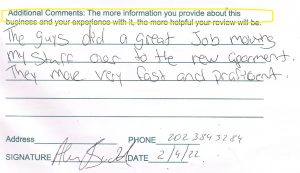 Additional Comments: The more information you provide about this
business and your experience with it, the more helpful your review will be.
The guys did a great Job moving
my stuff over to the new aparment.
They move very fast and
Address
PHONE 202 384 3284
SIGNATURE DATE 2/4/22